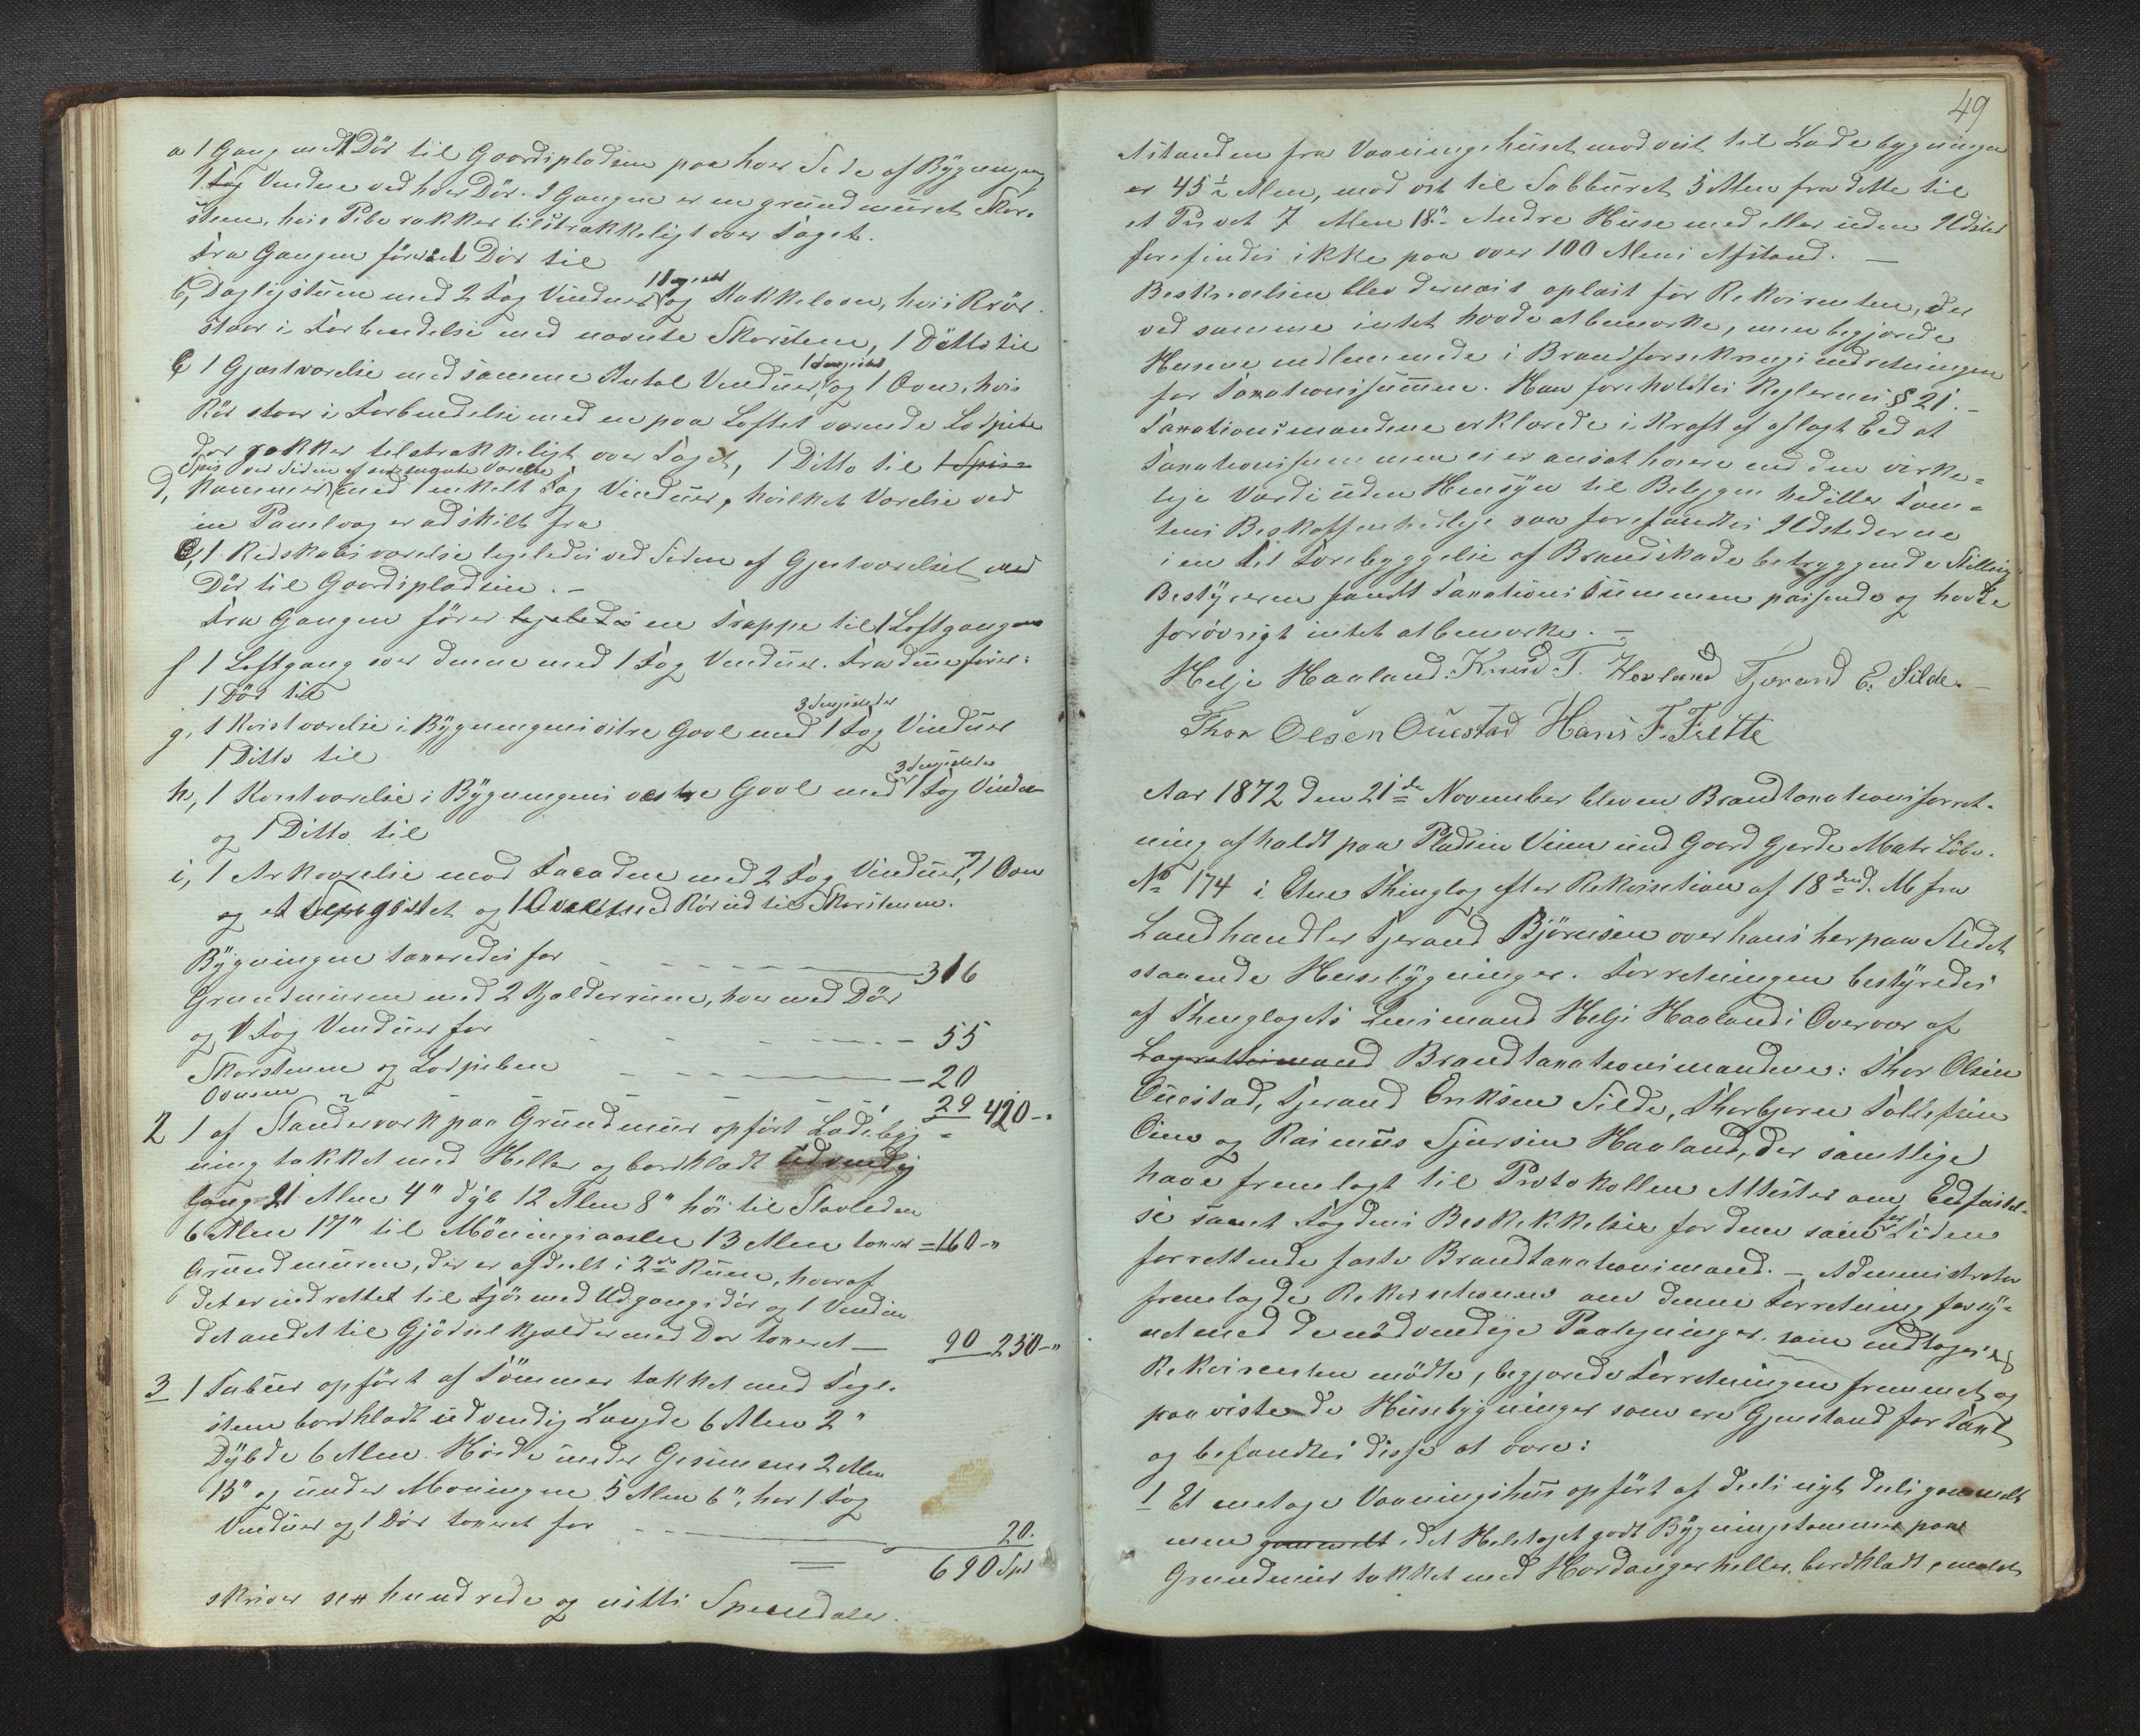 a 1 Gang med 1 Dör til Gaardspladsen paa hver Side af Bygningen
1 Fag Vinduer ved hver Dör. I Gangen er en grundmuret Skor-
sten, hvis Pibe rækker tilstrækkeligt over Taget.
Fra Gangen förer 1 Dör til
b, Dagligstuen med 2 Fag Vinduer og Kakkelovn, hvis Rör
staar i Forbindelse med nævnte Skorsten, 1 Ditto til
c 1 Gjæstværelse med samme Antal Vinduer, og 1 Ovn, hvis
Rör staar i Forbindelse med en paa Loftet værende Lodpibe
der rækker tilstrækkeligt over Taget, 1 Ditto til 1 Spis-
d, Kammer med 1 enkelt Fag Vinduer, hvilket Værelse ved
en Panelvæg er adskilt fra
e, 1 Redskabsværelse ligeledes ved Siden af Gjestværelset med
Dör til Gaardspladsen. -
Fra Gangen förer ligeledes en Trappe til 1 Loftgang
f 1 Loftgang over denne med 1 Fag Vinduer. Fra denne förer:
1 Dör til
3 Fagsteder
g, 1 Kvistværelse i Bygningens östre Gavl med 1 Fag Vinduer
1 Ditto til
3 Fagsteder
h, 1 Kvistværelse i Bygningens vestre Gavl med 1 Fag Vinduer
og 1 Ditto til
i, 1 Arkværelse mod Facaden med 2 Fag Vinduer, 1 Ovn
og et og 1 Ovn med Rör ind til Skorstenen.
Bygningen taxeredes for 316
Grundmuren med 2 Kjælderrum, hver med Dör
og 1 Fag Vinduer for 55
Skorstenen og Lodpiben 20
Ovnene 29 420-"
2 1 af Standerværk paa Grundmuur opfört Ladebyg-
ning tækket med Heller og bordklædt udvendig
lang 21 Alen 4" dyb 12 Alen 8" höi til Stavleden
6 Alen 17" til Mönningsaasen 13 Alen taxeret 160-"
Grundmuren, der er afdeelt i 2de Rum, hvoraf
det er indrettet til Fjös med Udgangsdör og 1 Vindue
det andet til Gjödselkjælder med Dör taxeret 90 250-"
3 1 Stabur opfört af Tömmer tækket med Tegl-
steen bordklædt udvendig Længde 6 Alen 2"
Dybde 6 Alen. Höide under Gesimsen 2 Alen
15" og under Mönningen 5 Alen 6", har 1 Fag
Vinduer og 1 Dör taxeret for 20.
690 Spd
skriver sex hundrede og nitti Speciedaler.
49
Afstanden fra Vaaningshuset mod vest til Ladebygningen
er 45 1/2 Alen, mod öst til Stabburet 5 Alen fra dette til
et 7 Alen 18". Andre Huse med eller uden Ildsted
forefindes ikke paa over 100 Alens Afstand. -
Beskrivelsen blev dernæst oplæst for Rekvirenten, der
ved samme intet havde at bemærke, men begjærede
Husene indlemmede i Brandforsikringsindretningen
for Taxationssummen. Han foreholdtes Reglerne i § 21. -
Taxationsmændene erklærede i Kraft af aflagt Eed at
Taxationssummen ei er ansat höiere end den virke-
lige Værdi uden Hensyn til Beliggenhed eller Tom-
tens Beskaffenhed lige saa forefandtes Ildstederne
i en til Forebyggelse af Brandskade betryggende Stilling
Bestyreren fandt Taxationssummen passende og havde
forövrigt intet at bemærke. -
Helje Haaland. Knud T. Hovland Tjerand E. Silde. -
Thor Olsen Öuestad Hans F. Frette
Aar 1872 den 21de November blev en Brandtaxationsforret-
ning afholdt paa Pladsen Vinn und Gaard Gjerde Matr Löbe-
No 174 i Etne Thinglag efter Rekvisition af 18de d. M fra
Landhandler Tjerand Björnsen over hans her paa Stedet
staaende Husebygninger. Forretningen bestyredes
af Thinglagets Lensmand Helje Haaland i Overvær af
Lagrettesmænd Brandtaxationsmændene: Thor Olsen
Öuestad, Tjerand Eriksen Silde, Thorbjørn Tollefsen
Öine og Rasmus Sjursen Haaland, der samtlige
have fremlagt til Protokollen Attester om Eedfæstel-
se samt Fogdens Beskikkelse for dem som for Tiden
forrettende faste Brandtaxationsmænd. - Administrator
fremlagde Rekvisitionen om denne Forretning, forsy-
net med de nödvendige Paategninger som indtages
Rekvirenten mödte, begjærede Forretningen fremmet og
paaviste de Husebygninger som ere Gjenstand for Taxt
og befandtes disse at være:
1 Et enetages Vaaningshus opfört af deels nyt deels gammelt
men gammelt i det Heletaget godt Bygningstömmer paa
Grundmur tækket med Hardangerheller, bordklædt, malet